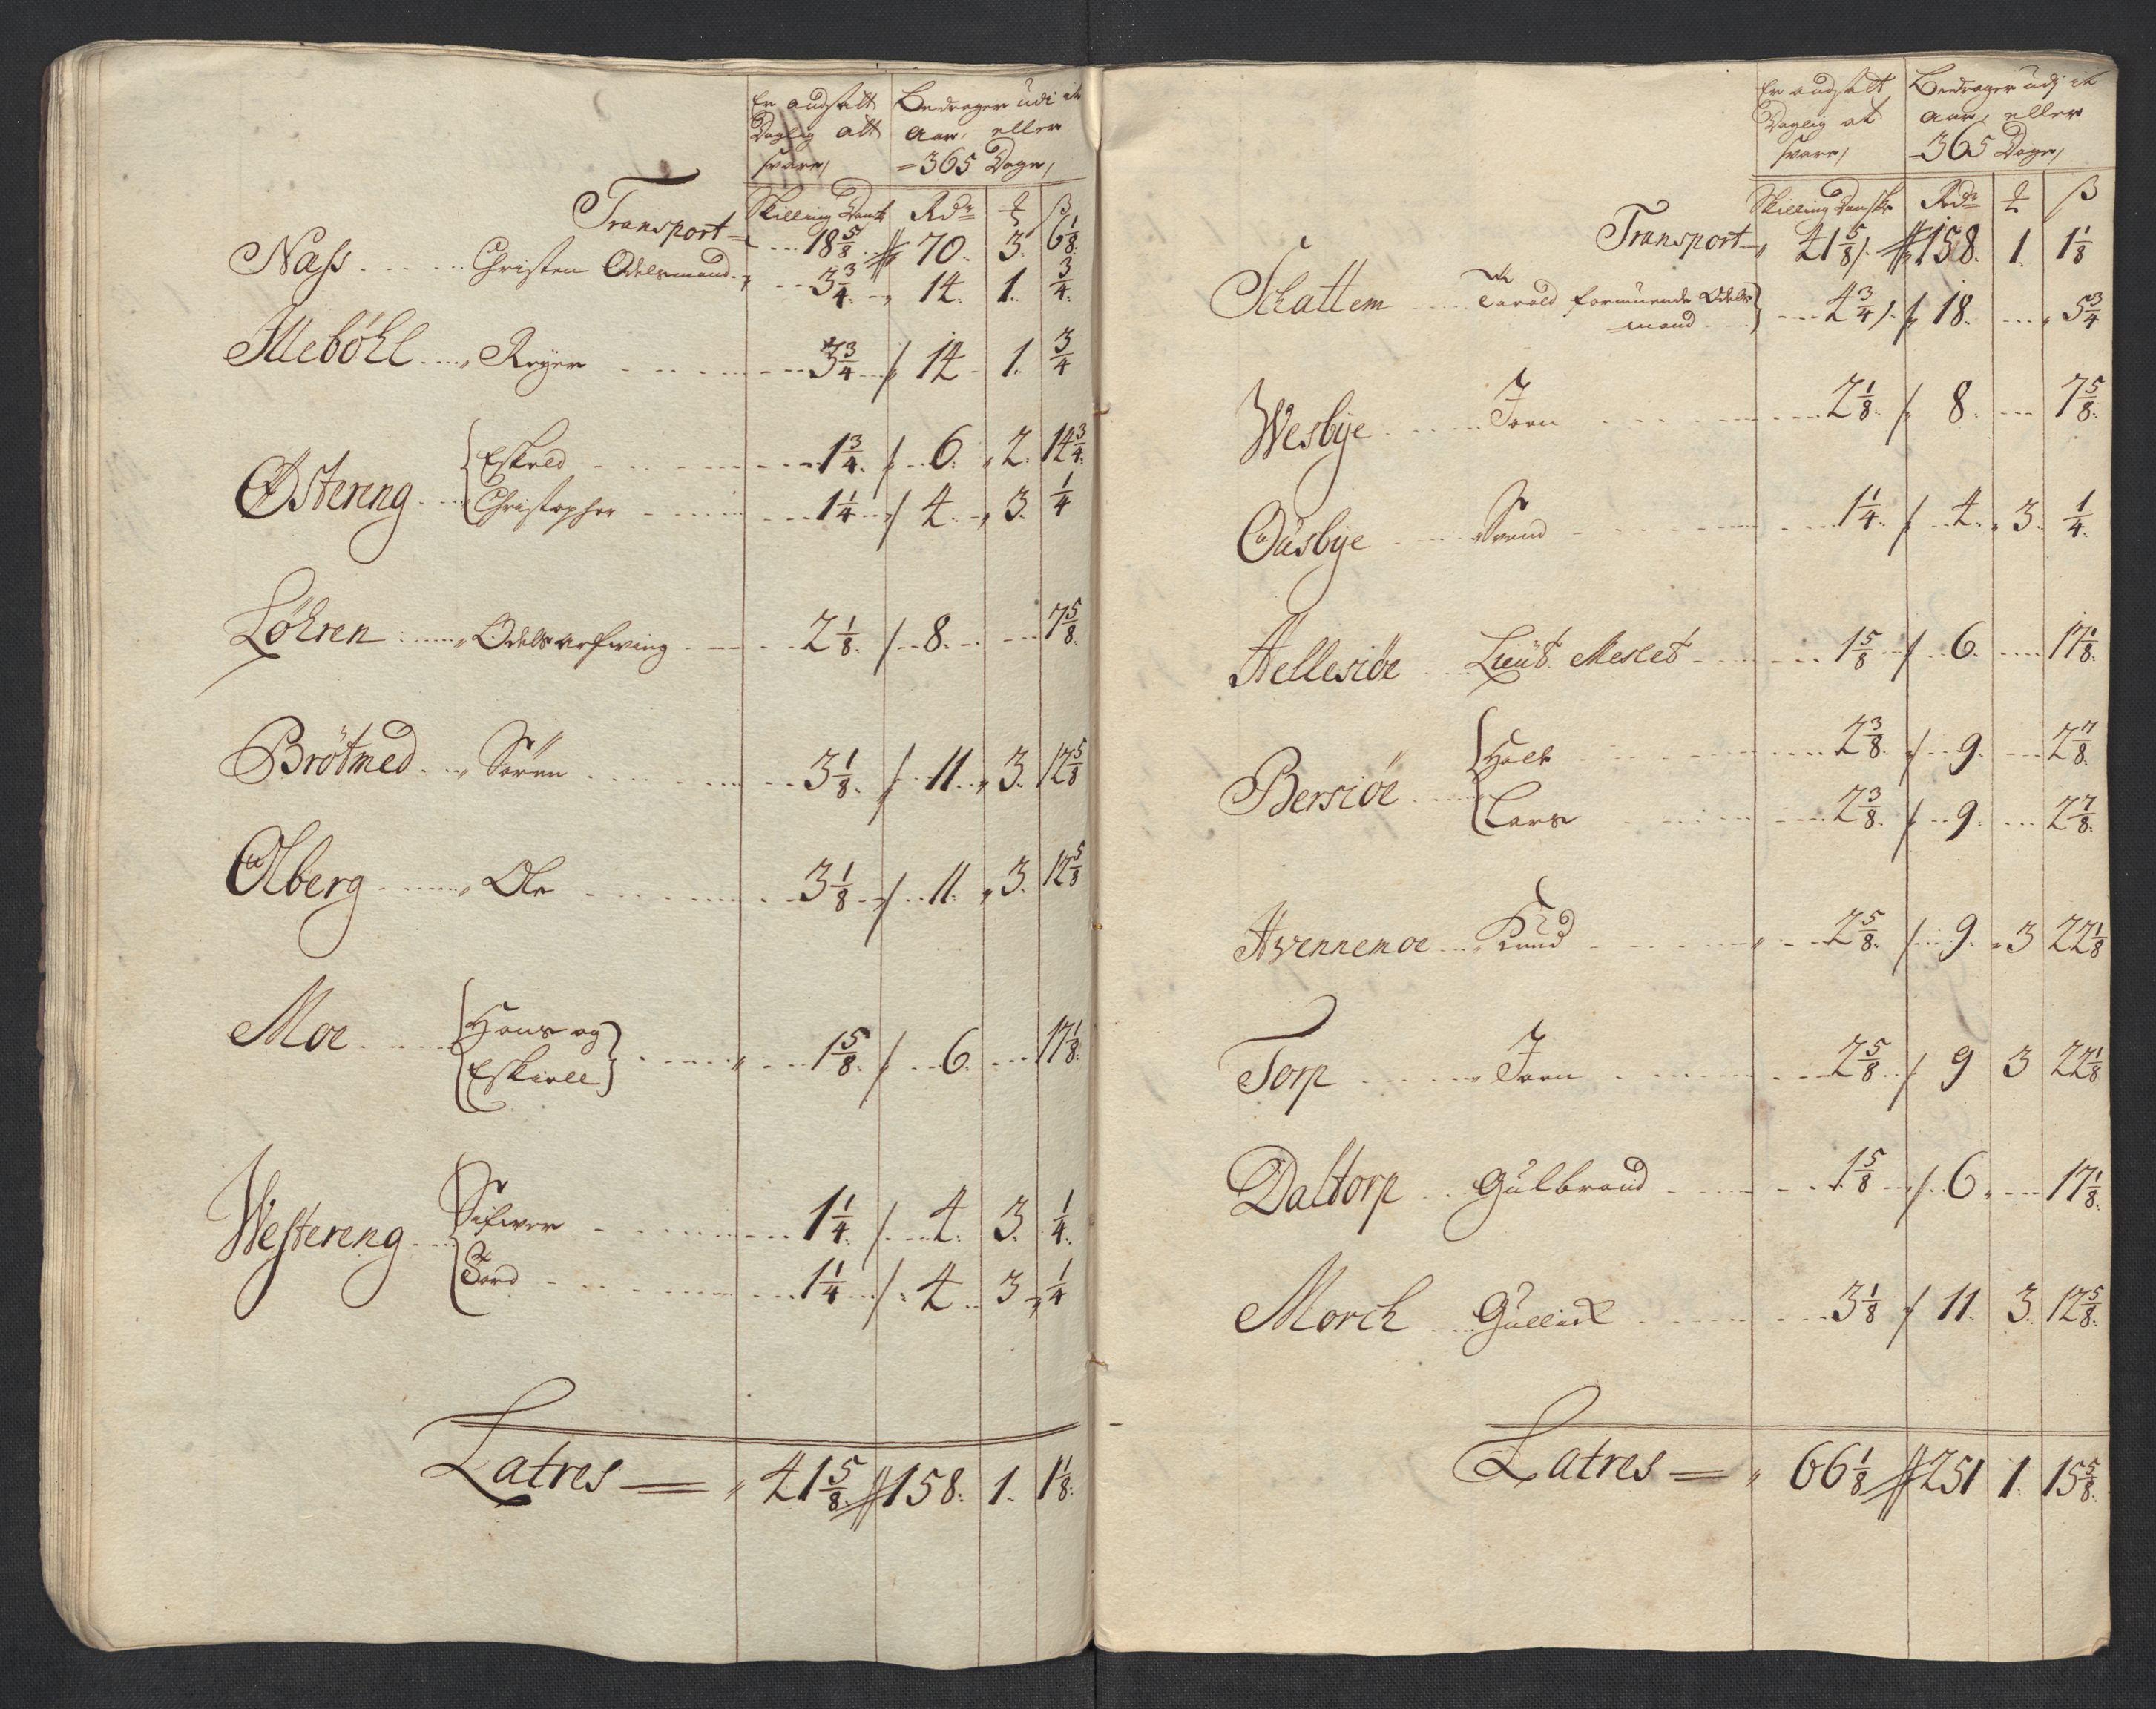 Er andstilt Daglig att svare,
Bedrager udi et Aar, eller =365 Dage,
Skilling Dansk Rdr ꝥ ß
Transport = 18 5/8 70. 3. 6 1/8
Nass Christen Odelsmand 3 3/4 14. 1. 3/4
Illebøhl Reyer 3 3/4 14 1. 3/4
Østereng Eskeld 1 3/4 6. 2. 14 3/4
Christopher 1 1/4 4. 3. 1/4
Løhren Odels arfving 2 1/8 8. 7 5/8
Brøtmed Sören 3 1/8 11. 3. 12 5/8
Olberg Ole 3 1/8 11. 3. 12 5/8
Moe Hans og
Eskiell 1 5/8 6. 17 1/8
Westereng Sifwer 1 1/4 4. 3. 1/4
Tord 1 1/4 4. 3 1/4
Latres = 41 5/8 158. 1. 1 1/8
Er andstilt Daglig at svare,
Bedrager udj et Aar, eller =365 Dage,
Skilling Danske Rdr ß
Transport = 41 5/8 158. 1. 1 1/8
Schattem Tarald formuende Odels
mand 4 3/4 18. 5 3/4
Wesbye Joen 2 1/8 8. 7 5/8
Oüsbye Svend 1 1/4 4. 3. 1/4
Hellesiöe Lieut. Meslet 1 5/8 6. 17 1/8
Bersiöe Holt 2 3/8 9. 2 7/8
Lars 2 3/8 9. 2 7/8
Hvennemoe Knud 2 5/8 9. 3 22 1/8
Torp Joen 2 5/8 9 3 22 1/8
Daltorp Gulbrand 1 5/8 6. 17 1/8
Morch Gullick 3 1/8 11. 3. 12 5/8
Latres = 66 1/8 251 1. 15 5/8